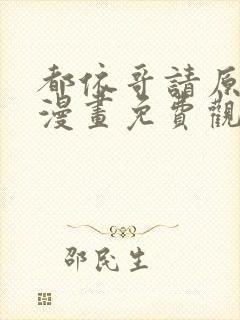 都依哥請原
漫畫免費觀
邵民生